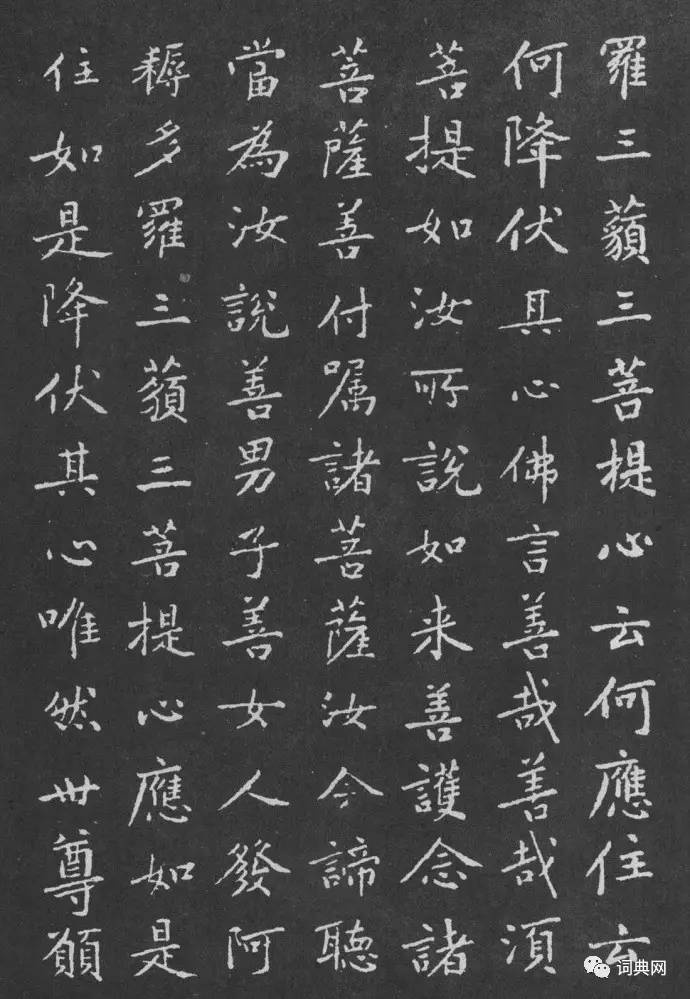 羅三藐三菩提心云何應住云
何降伏其心佛言善哉善哉須
菩提如汝所說如来善護念諸
菩薩善付嘱諸菩薩汝今諦聽
當為汝說善男子善女人發阿
耨多羅三藐三菩提心應如是
住如是降伏其心唯然世尊願
词典网